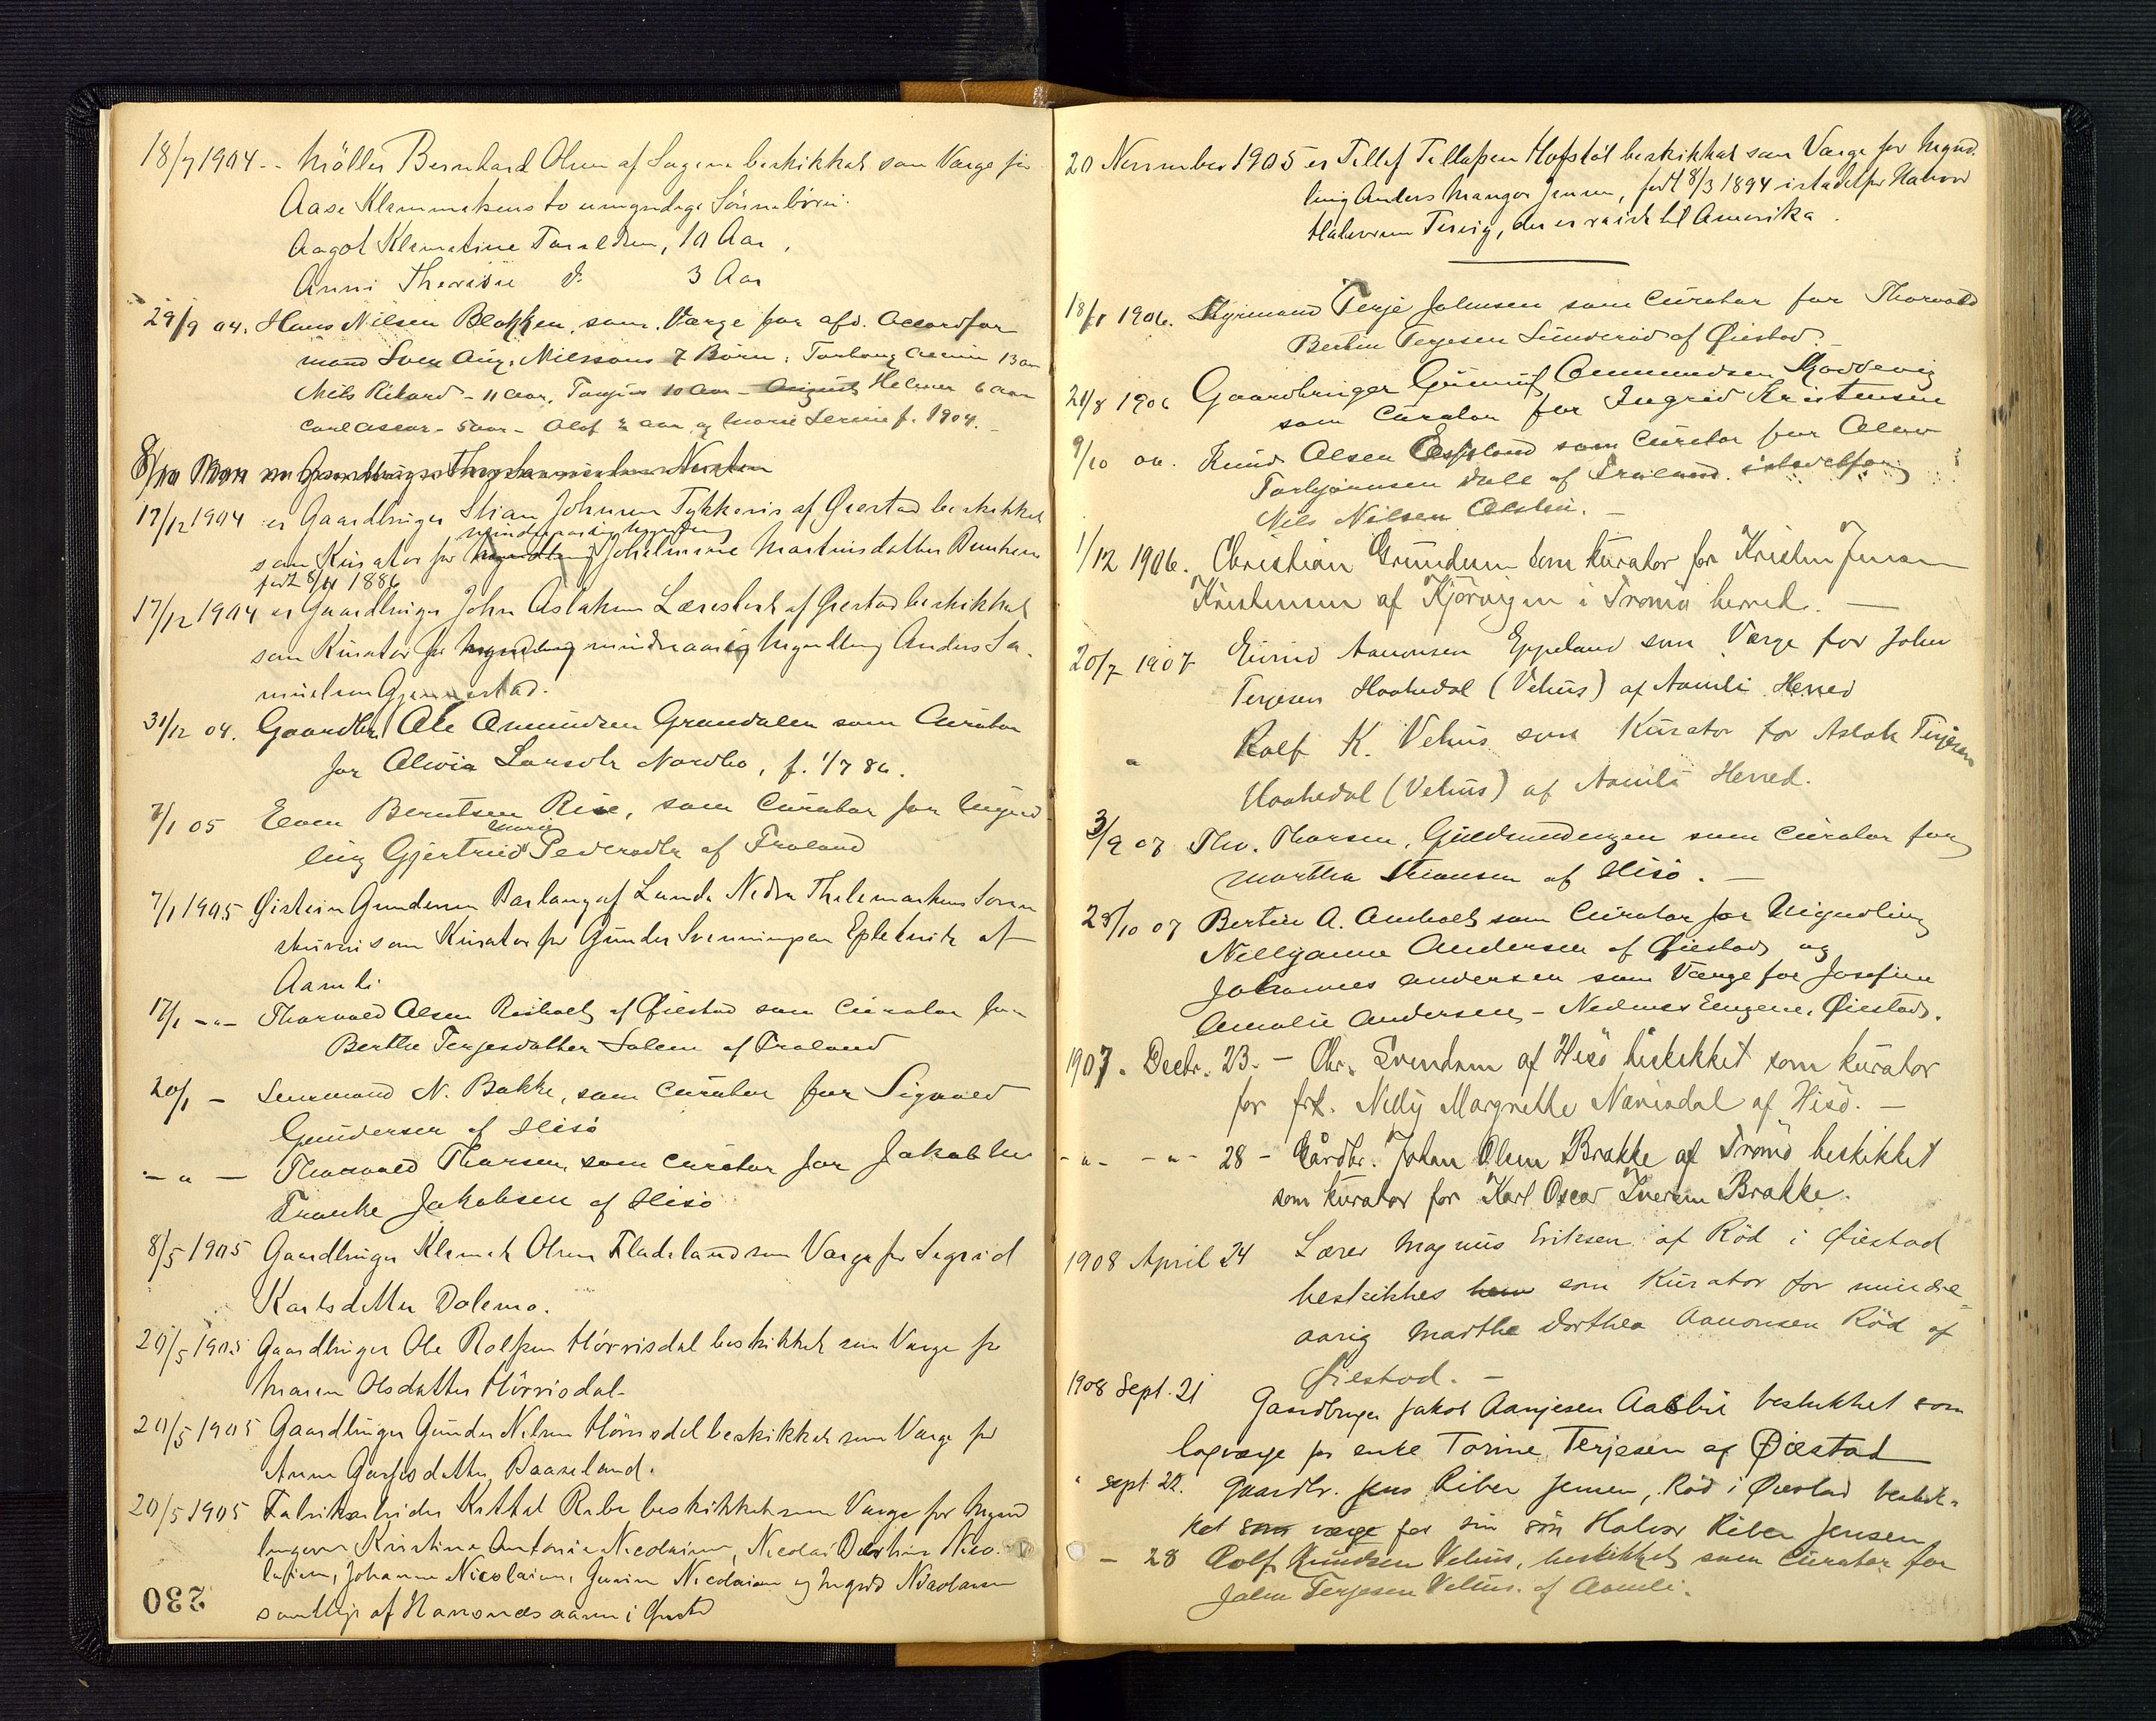 18/7 1904 -- Möller Bernhard Olsen af Sagene beskikket som Værge for
Aase Klemmetsens to umyndige Sönnebörn:
Aagot Klemetine Taraldsen, 10 Aar,
Anni Theresie do 3 Aar
29/9 04. Hans Nilsen Blakken, som Værge for afd. Accordfor
mand Sven Aug. Nilssons 7 Börn: 13 aar
Nils Rikard - 11 aar, 10 aar - August Helmer 6 aar
Carl Oscar - 5 aar - Olof 2 aar og Marie f. 1904. -
8/10
17/12 1904 er Gaardbruger Stian Johnsen af Øiestad beskikket
mindreaarig Myndling
som Kurator for Myndling Martinsdatter
født 8/11 1886
17/12 1904 er Gaardbruger John Aslaksen af Øiestad beskikket
som Kurator for Myndling mindreaarig Myndling Anders Sa-
muelsen Gjennestad.
31/12 04. Gaardbr. Ole Amundsen Grøndalen som Curator
for Olivia Larsdtr Nordbo, f. 1/7 86.
7/1 05 Even Berntsen Rise, som Curator for Mynd-
Marie
ling Gjertrud Pedersdtr af Froland
7/1 1905 Øistein Gundersen Barlaug af Lunde Nedre Thelemarkens Soren
skriveri som Kurator for Gunder Svenningsen Epletveit af
Aamli.
17/1 -"- Thorvald Olsen Risholt af Øiestad som Curator for
Berthe Terjesdatter Salem af Froland
20/1 - Lensmand N. Bakke, som Curator for Sigvald
Gundersen af Hisö
- " - Thorvald Thorsen som Curator for Jakob
Franke Jakobsen af Hisö
8/5 1905 Gaardbruger Klemet Olsen Fladeland som Værge for Sigrid
Karlsdatter Dolemo.
20/5 1905 Gaardbruger Ole Rolfsen Hörrisdal beskikket som Værge for
Maren Olsdatter Hörrisdal-
20/5 1905 Gaardbruger Gunder Nilsen Hörrisdal beskikket som Værge for
Anne Baaseland.
20/5 1905 Fabrikarbeider Kittel Rabe beskikket som Værge for Mynd
lingerne Kristine Antonie Nicolaisen, Nicolai Nico-
laisen, Johanne Nicolaisen, Nicolaisen og Ingrid Nicolaisen
samtlige af i Øiestad
230
20 November 1905 er Tellef Tellefsen Hofstöl beskikket som Værge for Mynd-
ling Anders Mangor Jensen, født 8/3 1894 istedetfor Halvor
Halvorsen Tveig, der er reist til Amerika.
18/1 1906. Styrmand Terje Johnsen som Curator for Thorvald
Bertin Terjesen Sunderöd af Øiestad. -
21/8 1906 Gaardbruger Gunuf Ommundsen
som Curator for Ingrid Kristensen
9/10 06. Knud Olsen Espeland som Curator for Olav
Torbjørnsen Dale af Froland istedetfor
Nils Nilsen -
1/12 1906. Christian Gundersen som kurator for Kristen Jensen
Kristensen af Kjörvigen i Tromö herred. -
20/7 1907 Eivind Aanonsen Eppeland som Værge for John
Terjesen Haahedal (Vehus) af Aamli Herred
" Rolf K. Vehus som Kurator for Aslak Terjesen
Haahedal (Vehus) af Aamli Herred.
3/9 07 Tho. Thorsen, Guldsmedengen som Curator for
Martha Thomsen af Hisö. -
28/10 07 Bertin A. Amholt som Curator for Myndling
Nillyanne Andersen af Øiestad og
Johannes Andersen som Værge for Josefine
Amalie Andersen, - Nedenes Eugene, Øiestad.
1907. Decbr. 23. - Chr. Svendsen af Hisö beskikket som kurator
for frk. Nelly Margrethe Næviødal af Hisö. -
-"- -"- 28 - Gårdbr. Johan Olsen Brakke af Tromö beskikket
som kurator for Karl Oscar Iversen Brakke.
1908 April 24 Lærer Magnus Eriksen af Röd i Øiestad
beskikkes ham som Kurator for mindre-
aarig Marthe Dorthea Aanonsen Röd af
Øiestad. -
1908 Sept. 21 Gaardbruger Jakob Aanjesen Aasbie beskikket som
lagværge for enke Torine Terjesen af Øiestad
" Sept 22. Gaardbr. Jens Riber Jensen, Röd i Øiestad beskik-
ket som værge for sin sön Halvor Riber Jensen
- 28 Rolf Knudsen Vehus, beskikket som Curator for
John Terjesen Vehus af Aamli.